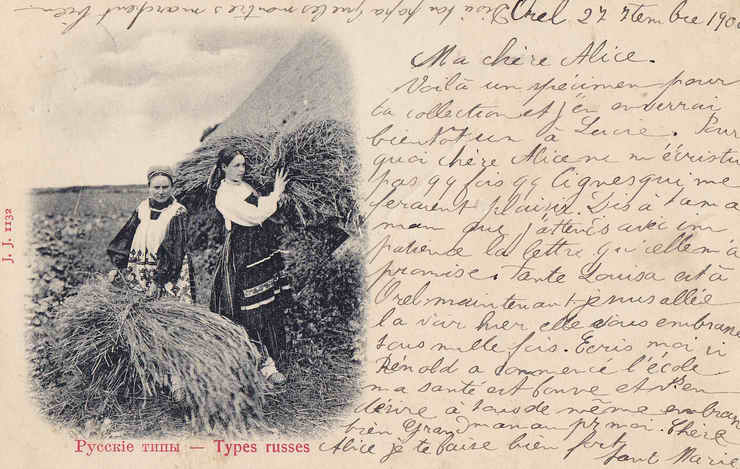 Dis à ton papa que les montres marchent bien.
Orel 27 7tembre 190
Ma chère Alice.
Voilà un spécimen pour
ta collection et j'en enverrai
bientôt un à Lucie. Pour
quoi chère Alice ne m'écris tu
pas qq fois qq lignes qui me
feraient plaisir. Dis à ta ma
man que j'attends avec im
patience la lettre qu'elle m'a
promise. Tante Louisa est à
Orel maintenant je suis allée
la voir hier, elle vous embrasse
tous mille fois. Ecris moi si
Rénold a commencé l'école
ma santé est bonne et t'en
désire à tous de même embrasse
bien Grandmaman pr moi. Chère
Alice je te baise bien fort
Tant Marie
J. J. 1132
Русскіе типы — Types russes